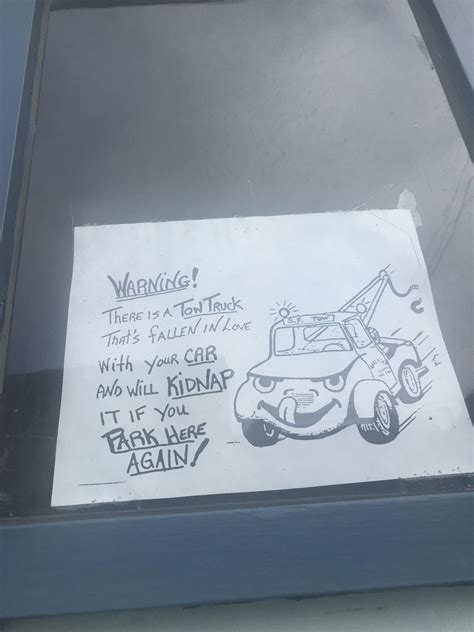 WARNING!
THERE IS A TOW TRUCK
THAT'S FALLEN IN LOVE
WITH YOUR CAR
AND WILL KIDNAP
IT IF YOU
PARK HERE
AGAIN!
S.F. TOW